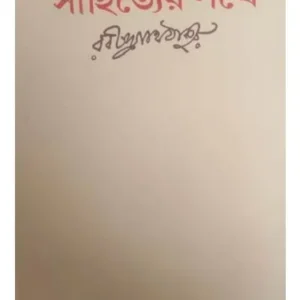 সাহিত্যের পথে
রবীন্দ্রনাথ ঠাকুর